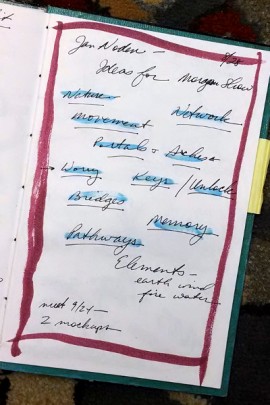 Jan Noden —
8/28
Ideas for Morgan Show
Nature
Network
Movement
Portals + Arches
Keys / Unlock
Bridges
Memory
Pathways
Elements —
earth wind
fire water
meet 9/21 —
2 mockups